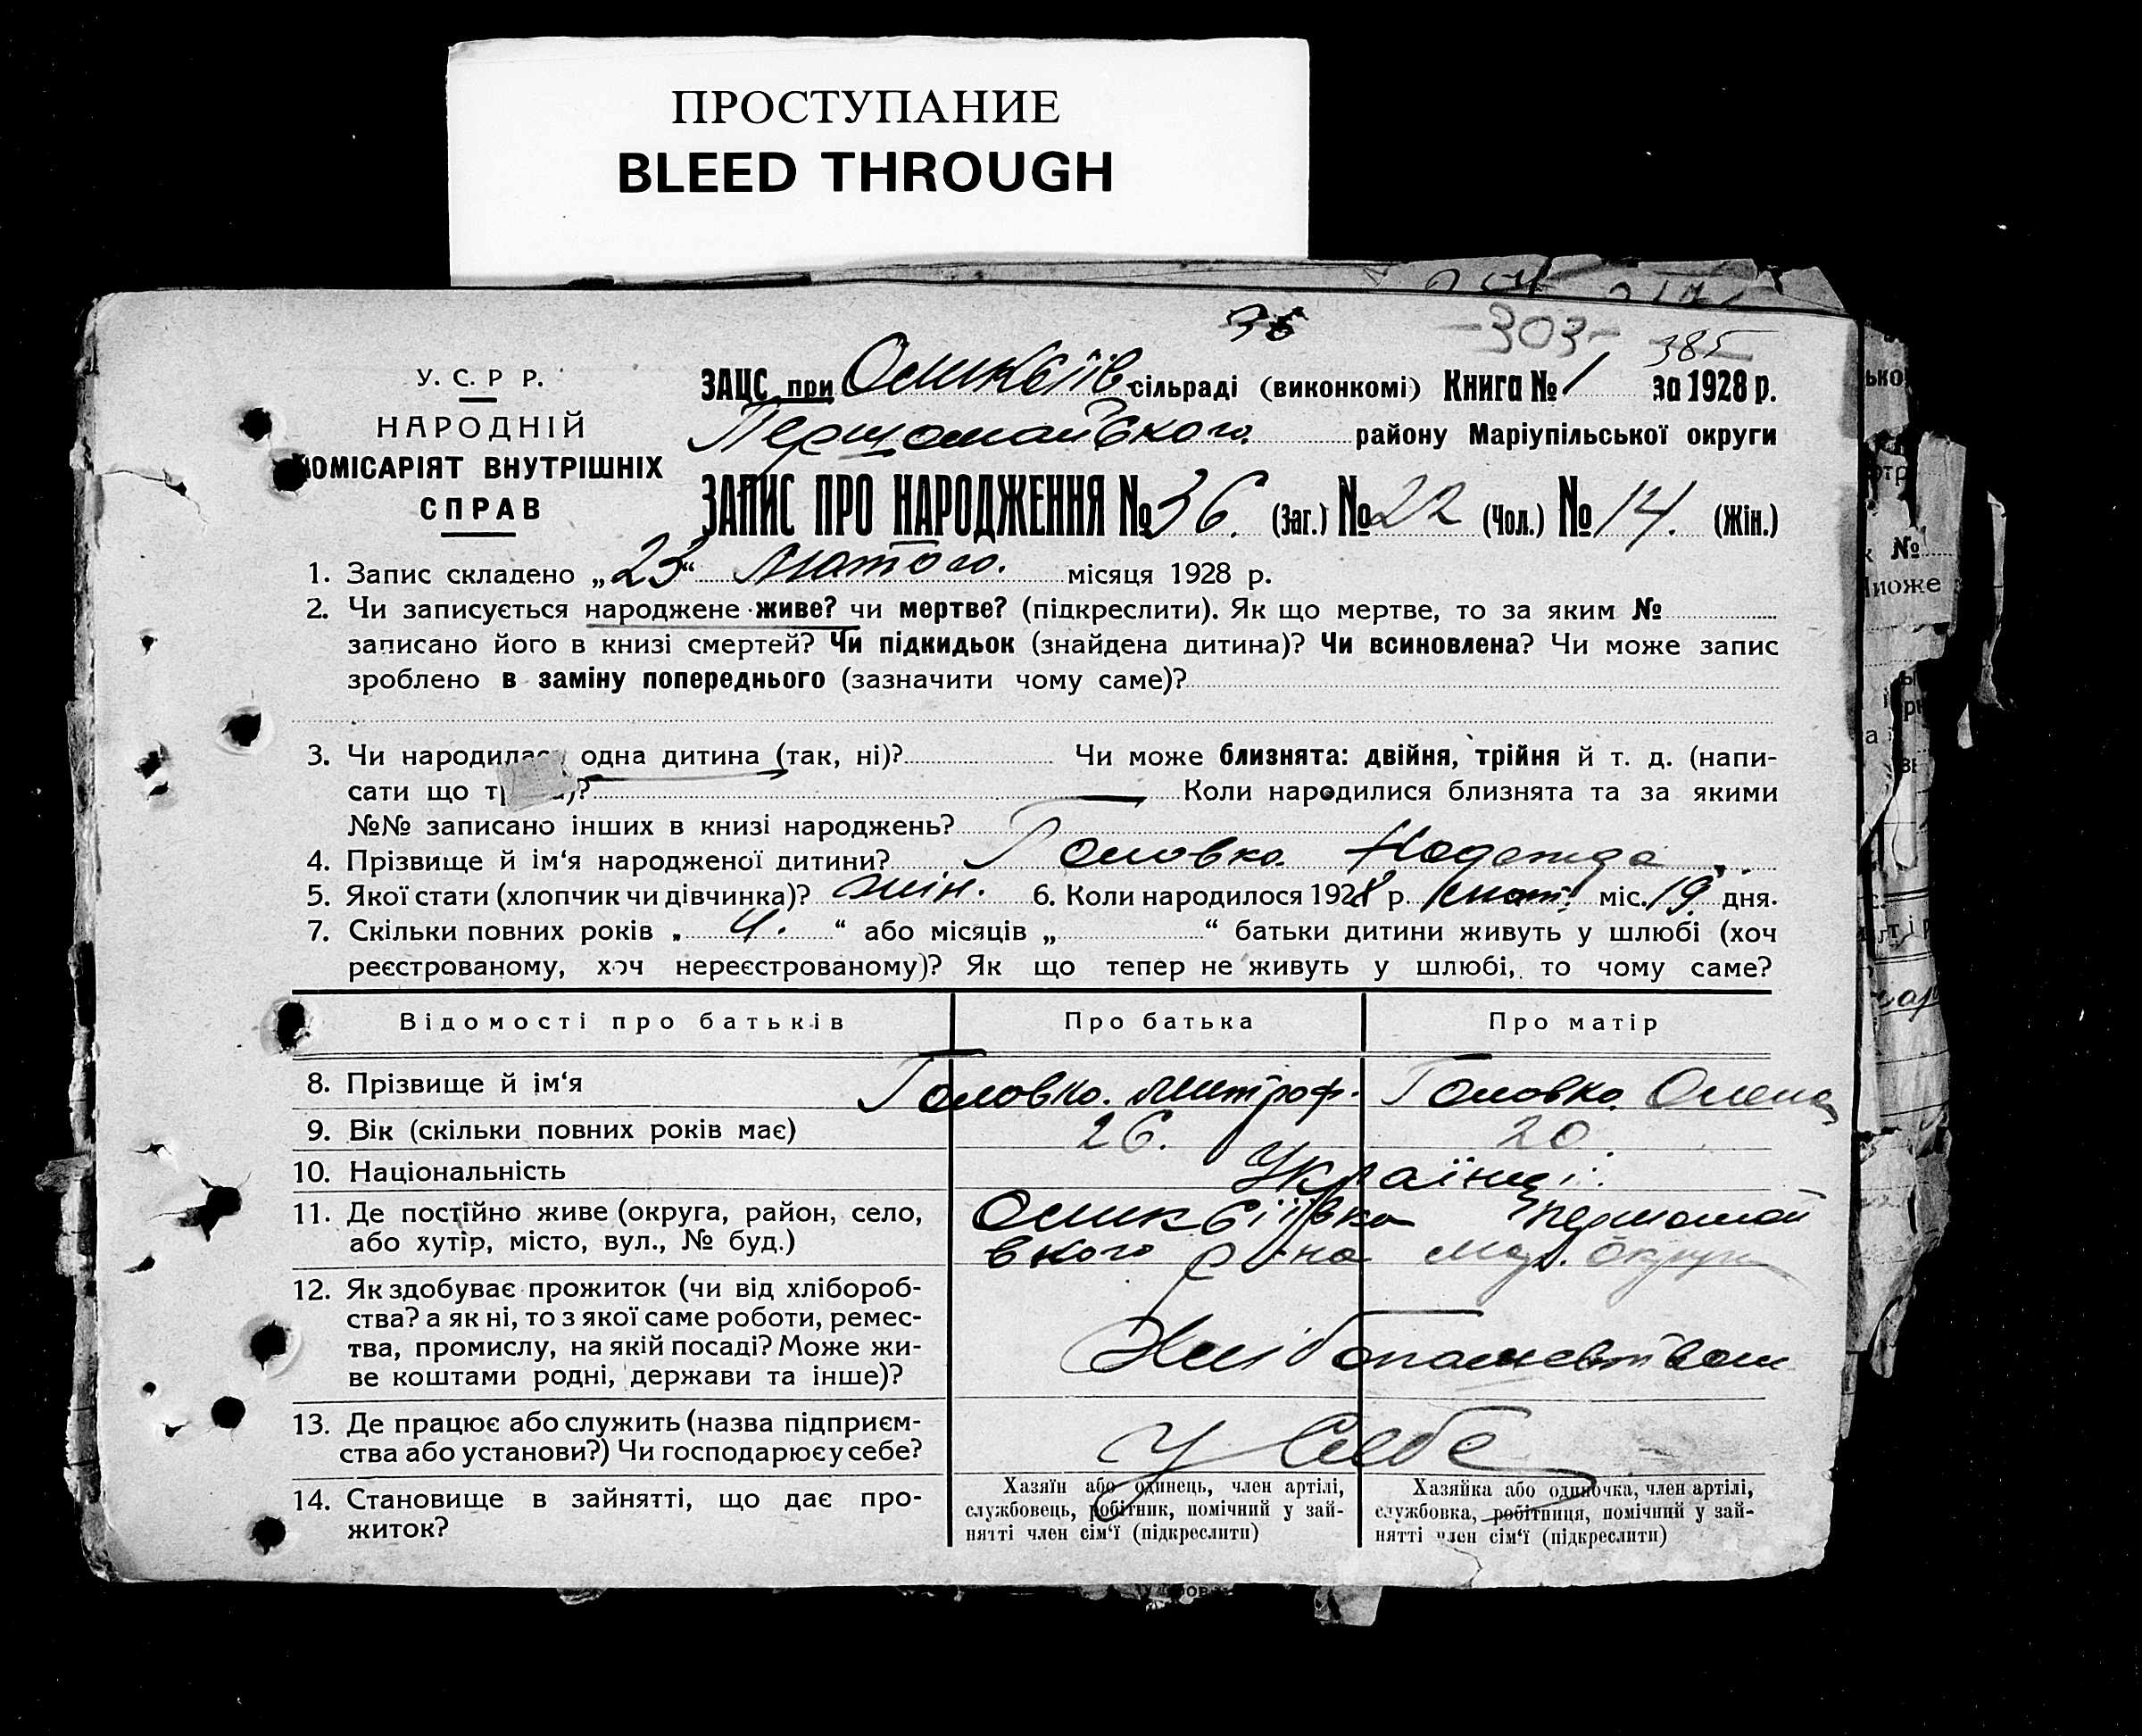 ПРОСТУПАНИЕ
BLEED THROUGH
-303- 385
У. С. Р Р.
НАРОДНІЙ
КОМІСАРІЯТ ВНУТРІШНІХ
СПРАВ
ЗАЦС при сільраді (виконкомі) Книга № 1 за 1928 р.
Першомайського району Маріупільської округи
ЗАПИС ПРО НАРОДЖЕННЯ № 36. (Заг.) № 22 (Чол.) № 14. (Жін.)
1. Запис складено „23“ Лютого. місяця 1928 р.
2. Чи записується народжене живе? чи мертве? (підкреслити). Як що мертве, то за яким №
записано його в книзі смертей? Чи підкидьок (знайдена дитина)? Чи всиновлена? Чи може запис
зроблено в заміну попереднього (зазначити чому саме)?
3. Чи народилась одна дитина (так, ні)? Чи може близнята: двійня, трійня й т. д. (напи-
сати що )? Коли народилися близнята та за якими
№№ записано інших в книзі народжень?
4. Прізвище й ім‘я народженої дитини? Головко Надежда
5. Якої стати (хлопчик чи дівчинка)? жін. 6. Коли народилося 1928 р. лют. міс. 19 дня.
7. Скільки повних років „ 4. “ або місяців „ “ батьки дитини живуть у шлюбі (хоч
реєстрованому, хоч нереєстрованому)? Як що тепер не живуть у шлюбі, то чому саме?
Відомості про батьків Про батька Про матір
8. Прізвище й ім‘я Головко Митроф. Головко Олена
9. Вік (скільки повних років має) 26. 20.
10. Національність Українці
11. Де постійно живе (округа, район, село, Першомай
або хутір, місто, вул., № буд.) ського р-на Мар. округи
12. Як здобуває прожиток (чи від хлібороб-
ства? а як ні, то з якої саме роботи, ремес-
тва, промислу, на якій посаді? Може жи- Хлібопашевством
ве коштами родні, держави та інше)?
13. Де працює або служить (назва підприєм- у себе
ства або установи?) Чи господарює у себе?
14. Становище в зайнятті, що дає про-
житок?
Хазяїн або одинець, член артілі,
службовець, робітник, помічний у зай-
нятті член сім‘ї (підкреслити)
Хазяйка або одиночка, член артілі,
службовка, робітниця, помічний у зай-
нятті член сім‘ї (підкреслити)